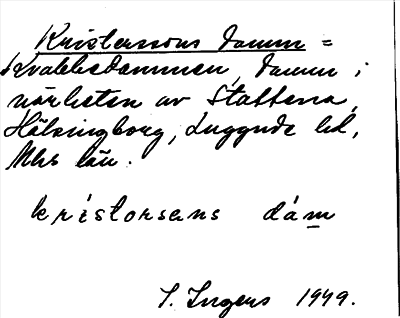 Kristerssons damm =
Kvabbedammen, damm i
närheten av Stattena,
Hälsingborg, Luggude hd,
Mhs län.
kristorsens dám
S. Ingers 1949.